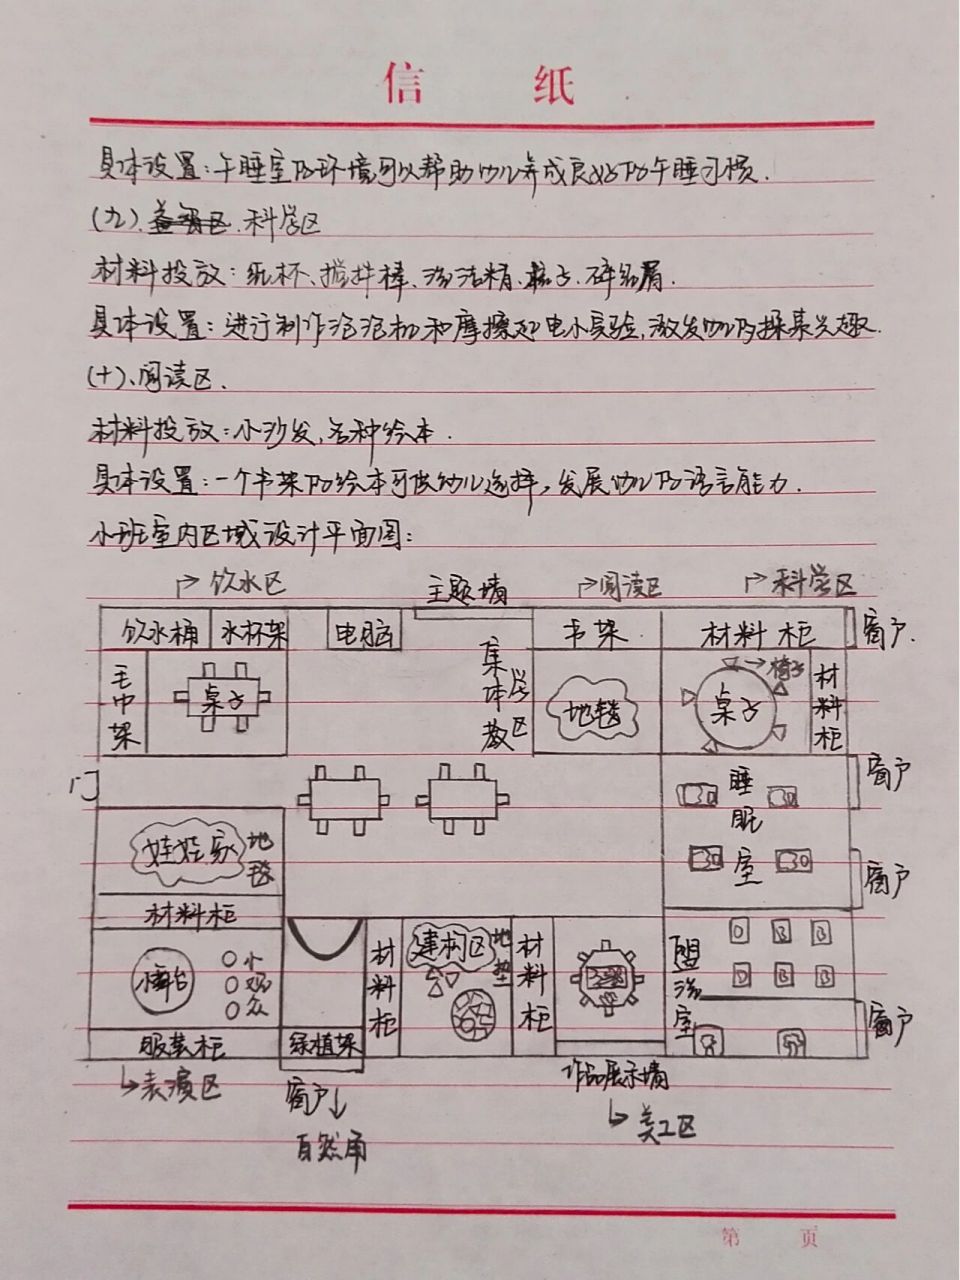 信 纸
具体设置：午睡室的环境可以帮助幼儿养成良好的午睡习惯.
(九). 科学区
材料投放：纸杯、搅拌棒、洗洁精、梳子、碎纸屑.
具体设置：进行制作泡泡机和摩擦起电小实验,激发幼儿的探索兴趣.
(十)、阅读区.
材料投放：小沙发,各种绘本.
具体设置：一个书架的绘本可供幼儿选择,发展幼儿的语言能力.
小班室内区域设计平面图：
饮水区 主题墙 阅读区 科学区
饮水桶 水杯架 电脑 书架 材料柜 窗户.
毛巾架 桌子 集体教学区 地毯 桌子 椅子 材料柜
门 窗户
睡眠室
娃娃家 地毯 窗户
材料柜
小舞台 小观众 材料柜 建构区 地垫 材料柜 盥洗室
服装柜 绿植架 窗户
表演区 窗户 作品展示墙
自然角 美工区
第 页